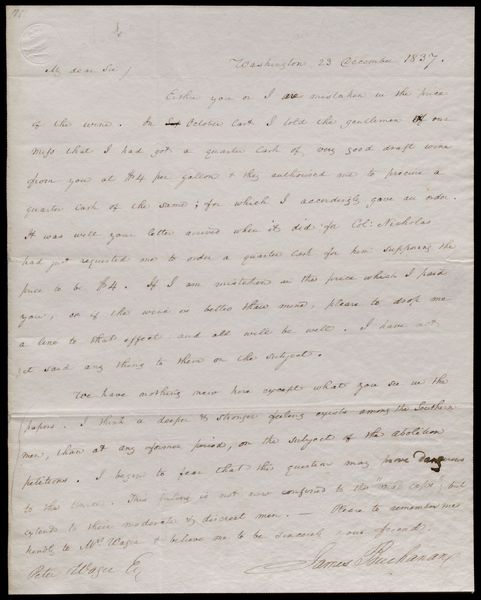 Washington 23 December 1837.
My dear Sir/
Either you or I are mistaken in the price
of the wine. In Sep October last I told the gentlemen of our
mess that I had got a quarter cask of very good draft wine
from you at $4 per gallon & they authorised me to procure a
quarter cask of the same; for which I accordingly gave an order.
It was well your letter arrived when it did for Col: Nicholas
had just requested me to order a quarter cask for him supposing the
price to be $4. If I am mistaken in the price which I paid
you, or if the wine is better than mine, please to drop me
a line to that effect and all will be well. I have not
yet said any thing to them on the subject.
We have nothing new here except what you see in the
papers. I think a deeper & stronger feeling exists among the Southern
men, than at any former period, on the subject of the abolition
petitions. I begin to fear that this question may prove dangerous
to the Union. This feeling is not now confined to the but
extends to their moderate & discreet men. — Please to remember me
kindly to Mrs Wager & believe me to be sincerely your friend.
James Buchanan
Peter Wager Esq